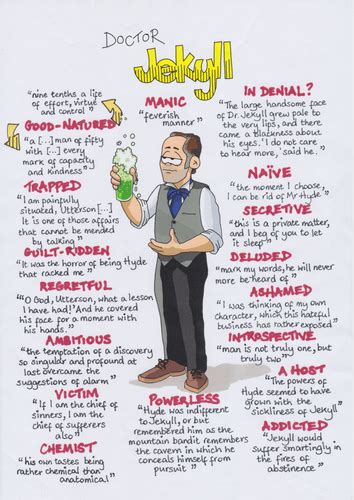 DOCTOR
Jekyll
"nine tenths a life
of effort, virtue
and control"
GOOD-NATURED
"a [...] man of fifty
with [...] every
mark of capacity
and kindness"
TRAPPED
"I am painfully
situated, Utterson [...]
It is one of those affairs
that cannot be mended
by talking"
GUILT-RIDDEN
"It was the horror of being Hyde
that racked me"
REGRETFUL
"O God, Utterson, what a lesson
I have had!' And he covered
his face for a moment with
his hands."
AMBITIOUS
"the temptation of a discovery
so singular and profound at
last overcame the
suggestions of alarm"
VICTIM
"If I am the chief of
sinners, I am the
chief of sufferers
also"
CHEMIST
"his own tastes being
rather chemical than
anatomical"
MANIC
"feverish
manner"
POWERLESS
"Hyde was indifferent
to Jekyll, or but
remembered him as the
mountain bandit remembers
the cavern in which he
conceals himself from
pursuit"
IN DENIAL?
"The large handsome face
of Dr. Jekyll grew pale to
the very lips, and there
came a Blackness about
his eyes. 'I do not care
to hear more,' said he."
NAÏVE
"the moment I choose,
I can be rid of Mr Hyde"
SECRETIVE
"this is a private matter,
and I beg of you to let
it sleep"
DELUDED
"mark my words, he will never
more be heard of"
ASHAMED
"I was thinking of my own
character, which this hateful
business has rather exposed"
INTRASPECTIVE
"man is not truly one, but
truly two"
A HOST
"The powers of
Hyde seemed to have
grown with the
sickliness of Jekyll"
ADDICTED
"Jekyll would
suffer smartingly in
the fires of
abstinence"